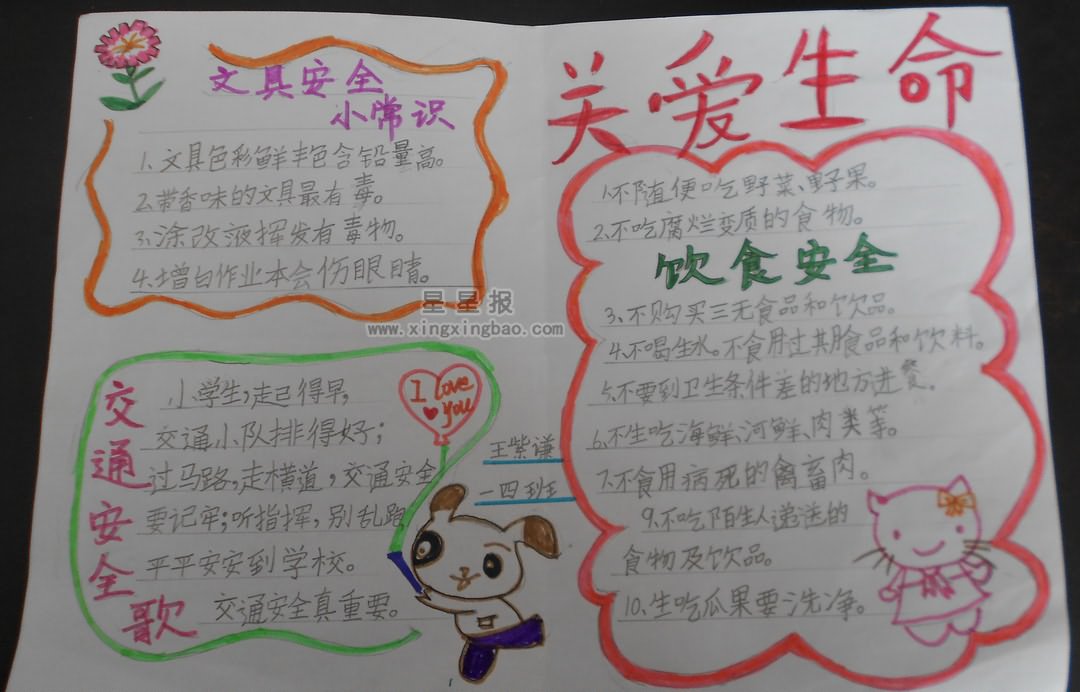 关爱生命
文具安全
小常识
1、文具色彩鲜丰色含铅量高。
2、带香味的文具最有毒。
3、涂改液挥发有毒物。
4、增白作业本会伤眼睛。
星星报
www.xingxingbao.com
交通安全歌
小学生,走己得早,
交通小队排得好;
过马路,走横道,交通安全
要记牢;听指挥,别乱跑
平平安安到学校。
交通安全真重要。
I love
you
王紫谦
一四班
1、不随便吃野菜、野果。
2、不吃腐烂变质的食物。
饮食安全
3、不购买三无食品和饮品。
4、不喝生水。不食用过其月食品和饮料。
5、不要到卫生条件差的地方进餐。
6、不生吃海鲜、河鲜、肉类等。
7、不食用病死的禽畜肉。
9、不吃陌生人递送的
食物及饮品。
10、生吃瓜果要洗净。